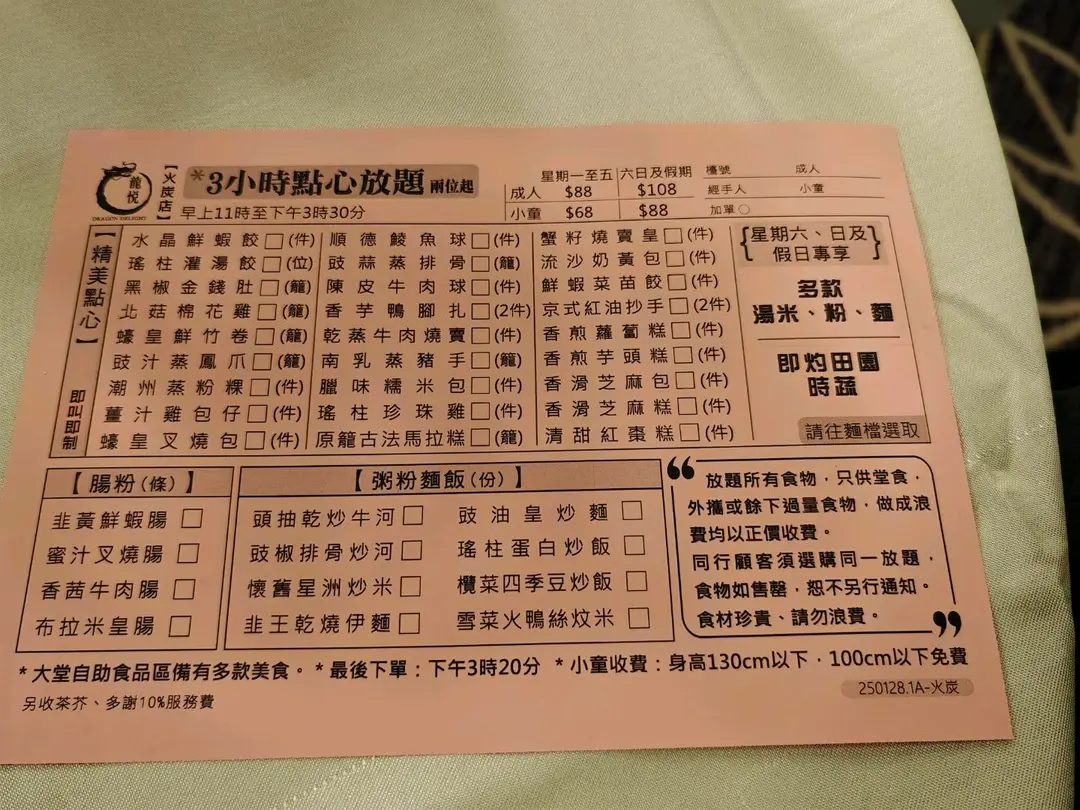 龍悅
DRAGON DELIGHT
【火炭店】
*3小時點心放題 兩位起
早上11時至下午3時30分
星期一至五 六日及假期
成人 $88 $108
小童 $68 $88
檯號 成人
經手人 小童
加單○
【精美點心】
即叫即製
水晶鮮蝦餃□(件)
瑤柱灌湯餃□(位)
黑椒金錢肚□(籠)
北菇棉花雞□(籠)
蠔皇鮮竹卷□(籠)
豉汁蒸鳳爪□(籠)
潮州蒸粉粿□(件)
薑汁雞包仔□(件)
蠔皇叉燒包□(件)
順德鯪魚球□(件)
豉蒜蒸排骨□(籠)
陳皮牛肉球□(件)
香芋鴨腳扎□(2件)
乾蒸牛肉燒賣□(件)
南乳蒸豬手□(籠)
臘味糯米包□(件)
瑤柱珍珠雞□(件)
原籠古法馬拉糕□(籠)
蟹籽燒賣皇□(件)
流沙奶黃包□(件)
鮮蝦菜苗餃□(件)
京式紅油抄手□(2件)
香煎蘿蔔糕□(件)
香煎芋頭糕□(件)
香滑芝麻包□(件)
香滑芝麻糕□(件)
清甜紅棗糕□(件)
{星期六、日及
假日專享}
多款
湯米、粉、麵
即灼田園
時蔬
請往麵檔選取
【腸粉(條)】
韭黃鮮蝦腸□
蜜汁叉燒腸□
香茜牛肉腸□
布拉米皇腸□
【粥粉麵飯(份)】
頭抽乾炒牛河□
豉椒排骨炒河□
懷舊星洲炒米□
韭王乾燒伊麵□
豉油皇炒麵□
瑤柱蛋白炒飯□
欖菜四季豆炒飯□
雪菜火鴨絲炆米□
“放題所有食物，只供堂食，
外攜或餘下過量食物，做成浪
費均以正價收費。
同行顧客須選購同一放題，
食物如售罄，恕不另行通知。
食材珍貴、請勿浪費。”
*大堂自助食品區備有多款美食。*最後下單：下午3時20分 *小童收費：身高130cm以下，100cm以下免費
另收茶芥、多謝10%服務費
250128.1A-火炭